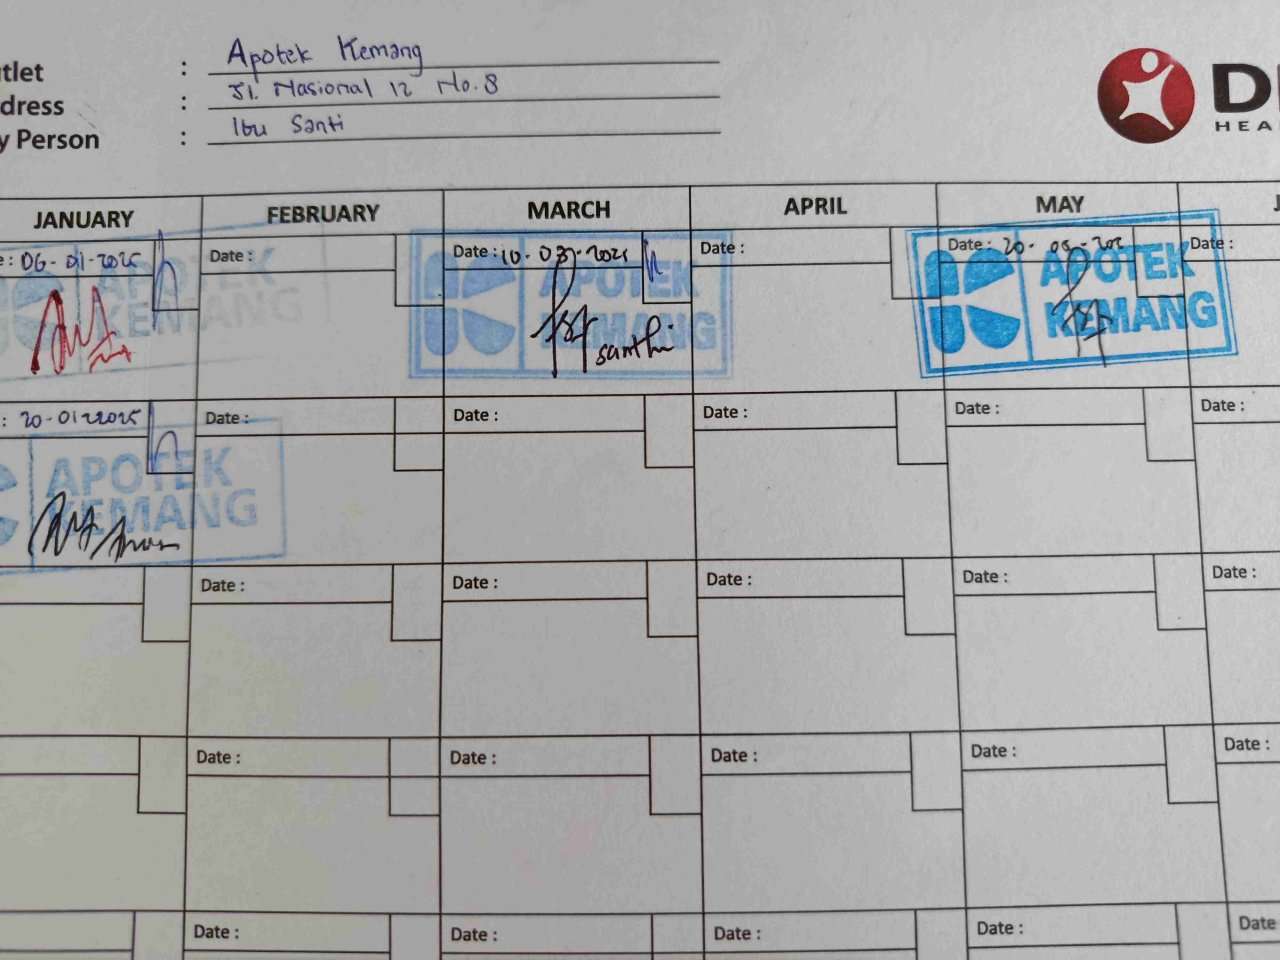 Outlet : Apotek Kemang
Address : Jl. Nasional 12 No. 8
Key Person : Ibu Santi
HEA
JANUARY FEBRUARY MARCH APRIL MAY
: 06-01-2025 Date : Date : 10-03-2025 Date : Date : 20-05-202 Date :
APOTEK KEMANG APOTEK KEMANG APOTEK KEMANG
santhi
: 20-01-2025 Date : Date : Date : Date : Date :
APOTEK KEMANG
Date : Date : Date : Date : Date :
Date : Date : Date : Date : Date :
Date : Date : Date : Date : Date